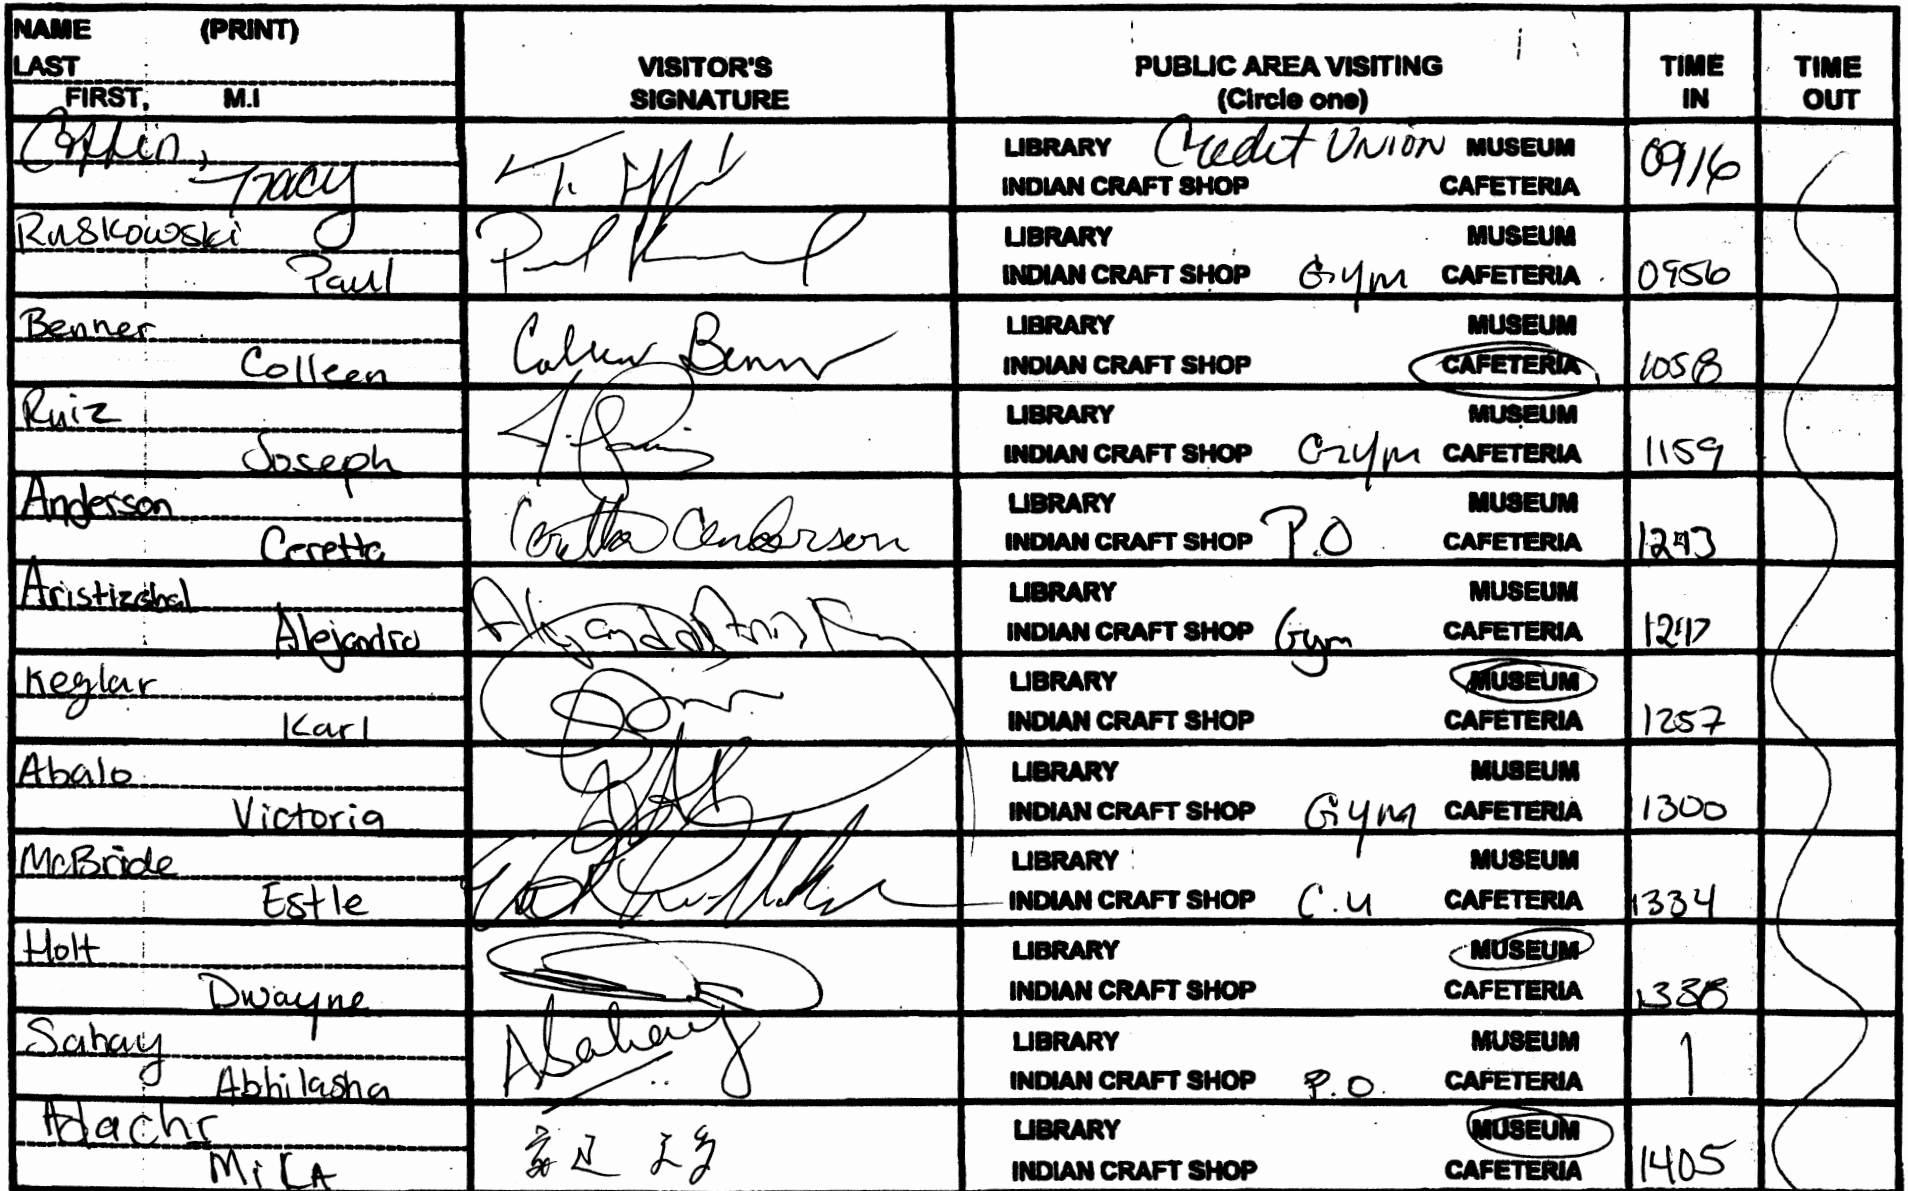 NAME (PRINT)
LAST
FIRST, M.I
VISITOR'S
SIGNATURE
PUBLIC AREA VISITING
(Circle one)
TIME
IN
TIME
OUT
Coffin,
Tracy
LIBRARY Credit Union MUSEUM
INDIAN CRAFT SHOP CAFETERIA
0916
Ruskowski
Paul
LIBRARY MUSEUM
INDIAN CRAFT SHOP Gym CAFETERIA
0956
Benner
Colleen
Colleen Benner
LIBRARY MUSEUM
INDIAN CRAFT SHOP CAFETERIA
1058
Ruiz
Joseph
LIBRARY MUSEUM
INDIAN CRAFT SHOP Gym CAFETERIA
1159
Anderson
Coretta
Coretta Anderson
LIBRARY MUSEUM
INDIAN CRAFT SHOP P.O CAFETERIA
Aristizabal
Alejandro
LIBRARY MUSEUM
INDIAN CRAFT SHOP Gym CAFETERIA
Keglar
Karl
LIBRARY MUSEUM
INDIAN CRAFT SHOP CAFETERIA
1257
Abalo
Victoria
LIBRARY MUSEUM
INDIAN CRAFT SHOP Gym CAFETERIA
1300
McBride
Estle
LIBRARY MUSEUM
INDIAN CRAFT SHOP C.U CAFETERIA
1334
Holt
Dwayne
LIBRARY MUSEUM
INDIAN CRAFT SHOP CAFETERIA
1338
Sahay
Abhilasha
ASahay
LIBRARY MUSEUM
INDIAN CRAFT SHOP P.O. CAFETERIA
Adachi
LIBRARY MUSEUM
INDIAN CRAFT SHOP CAFETERIA
1405